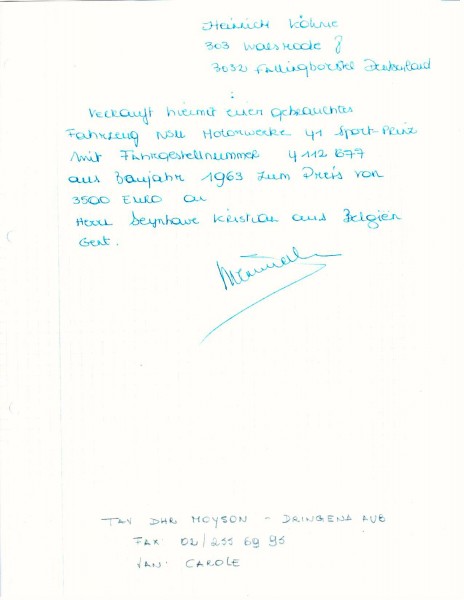 Heinrich Köhne
303 Walsrode 8
3032 Fallingbostel Deutschland
:
Verkauft hiermit einen gebrauchtes
Fahrzeug NSU Motorwerke 41 Sport-Prinz
mit Fahrgestellnummer 4 112 677
aus Baujahr 1963 zum Preis von
3500 EURO an
Herr Seynhave Kristian aus Belgien
Gent.
TAV DHR MOYSON - DRINGEND AUB
FAX: 02/255 69 95
VAN: CAROLE